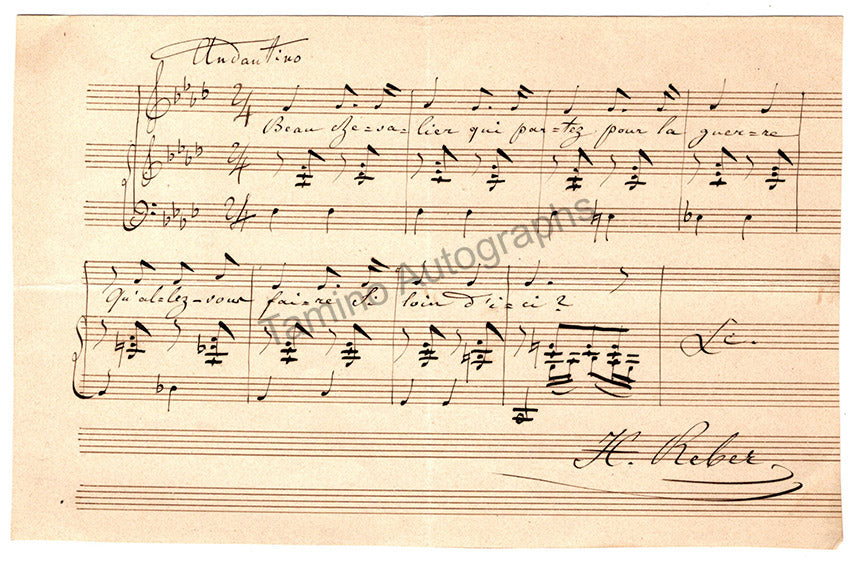 Andantino
2/4
Beau che=va=lier qui par=tez pour la guer=re
2/4
2/4
Qu'al=lez=vous fai=re Si loin d'i=ci?
H. Reber
Tamino Autographs